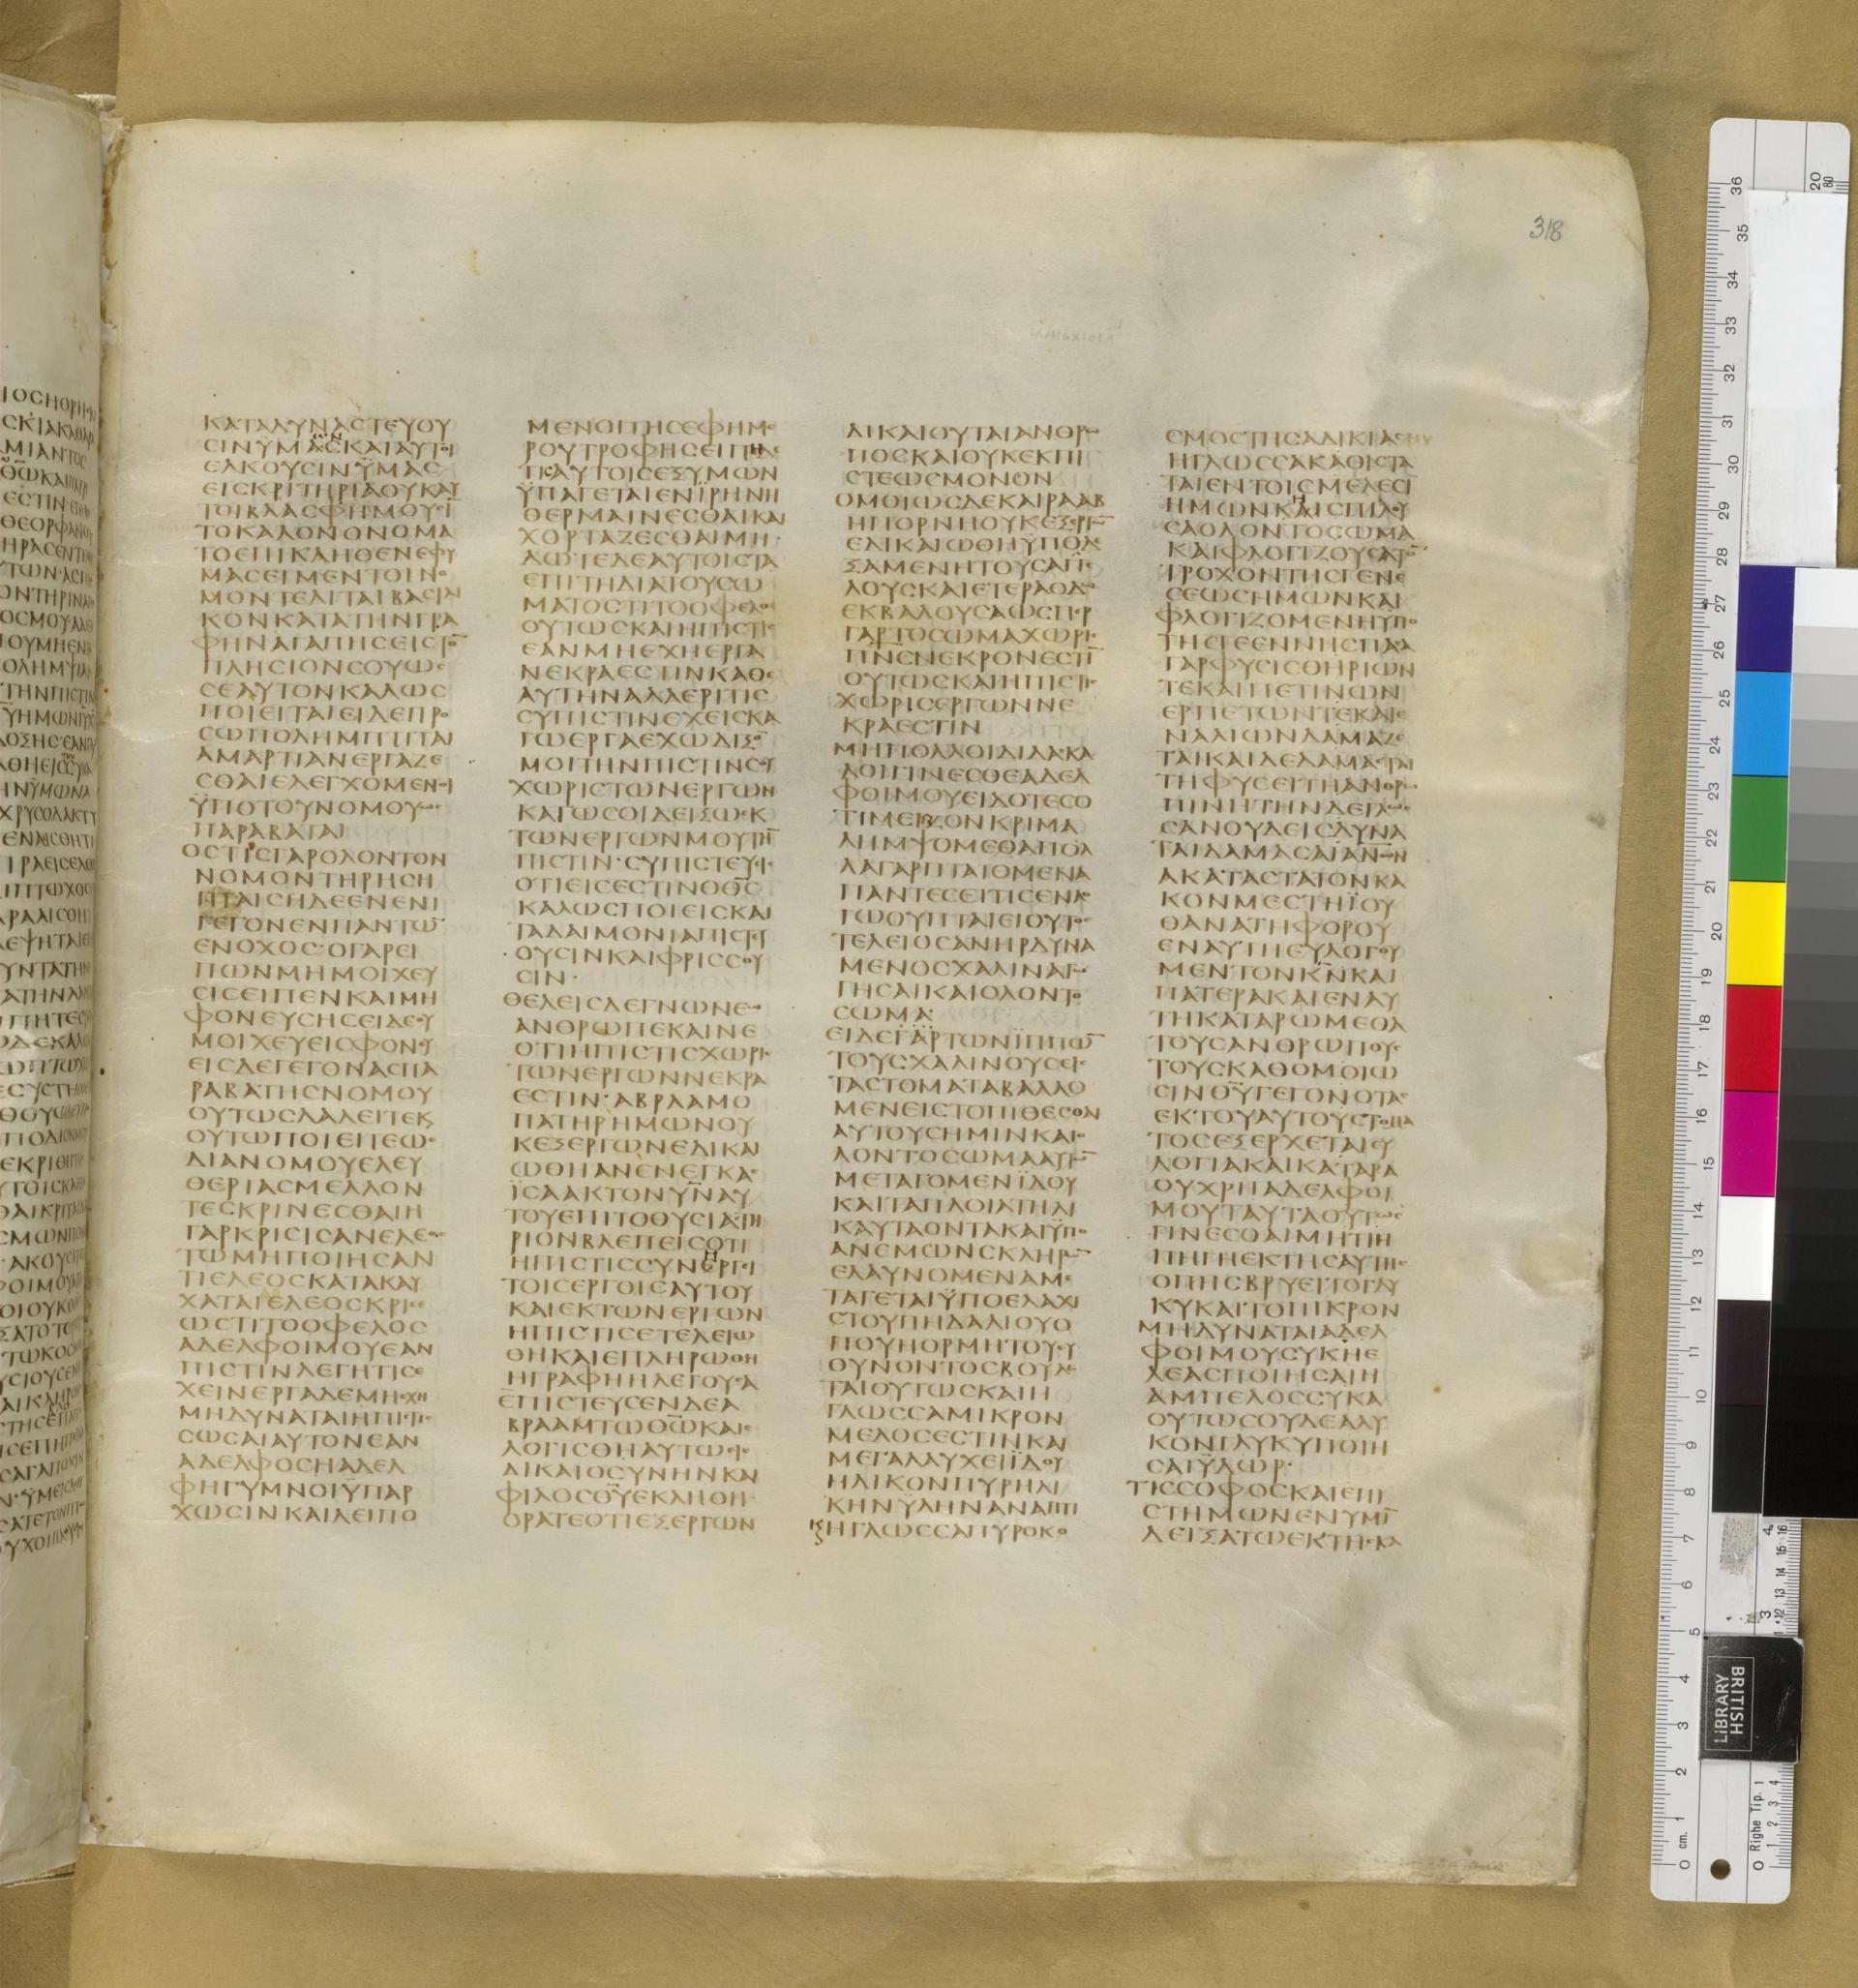 318
ΚΑΤΑΔΥΝΑϹΤΕΥΟΥ
ϹΙΝΥΜΑϹΚΑΙΑΥΤΟΙ
ΕΛΚΟΥϹΙΝΫΜΑϹ
ΕΙϹΚΡΙΤΗΡΙΑΟΥΚΑΥ
ΤΟΙΒΛΑϹΦΗΜΟΥϹΙ
ΤΟΚΑΛΟΝΟΝΟΜΑ
ΤΟΕΠΙΚΛΗΘΕΝΕΦΥ
ΜΑϹΕΙΜΕΝΤΟΙΝΟ
ΜΟΝΤΕΛΙΤΑΙΒΑϹΙΛΙ
ΚΟΝΚΑΤΑΤΗΝΓΡΑ
ΦΗΝΑΓΑΠΗϹΕΙϹΤΟ̅
ΠΛΗϹΙΟΝϹΟΥΩϹ
ϹΕΑΥΤΟΝΚΑΛΩϹ
ΠΟΙΕΙΤΑΙΕΙΔΕΠΡΟ
ϹΩΠΟΛΗΜΠΤΙΤΑΙ
ΑΜΑΡΤΙΑΝΕΡΓΑΖΕ
ϹΘΑΙΕΛΕΓΧΟΜΕΝΟΙ
ΫΠΟΤΟΥΝΟΜΟΥΩϹ
ΠΑΡΑΒΑΤΑΙ
ΟϹΤΙϹΓΑΡΟΛΟΝΤΟΝ
ΝΟΜΟΝΤΗΡΗϹΗ
ΠΤΑΙϹΗΔΕΕΝΕΝΙ
ΓΕΓΟΝΕΝΠΑΝΤΩ̅
ΕΝΟΧΟϹ·ΟΓΑΡΕΙ
ΠΩΝΜΗΜΟΙΧΕΥ
ϹΙϹΕΙΠΕΝΚΑΙΜΗ
ΦΟΝΕΥϹΗϹΕΙΔΕΟΥ
ΜΟΙΧΕΥΕΙϹΦΟΝΕΥ
ΕΙϹΔΕΓΕΓΟΝΑϹΠΑ
ΡΑΒΑΤΗϹΝΟΜΟΥ
ΟΥΤΩϹΛΑΛΕΙΤΕΚ
ΟΥΤΩΠΟΙΕΙΤΕΩϹ
ΔΙΑΝΟΜΟΥΕΛΕΥ
ΘΕΡΙΑϹΜΕΛΛΟΝ
ΤΕϹΚΡΙΝΕϹΘΑΙΗ
ΓΑΡΚΡΙϹΙϹΑΝΕΛΕΟϹ
ΤΩΜΗΠΟΙΗϹΑΝ
ΤΙΕΛΕΟϹΚΑΤΑΚΑΥ
ΧΑΤΑΙΕΛΕΟϹΚΡΙϹΕ
ΩϹΤΙΤΟΟΦΕΛΟϹ
ΑΔΕΛΦΟΙΜΟΥΕΑΝ
ΠΙϹΤΙΝΛΕΓΗΤΙϹΕ
ΧΕΙΝΕΡΓΑΔΕΜΗΕΧΗ
ΜΗΔΥΝΑΤΑΙΗΠΙϹΤΙϹ
ϹΩϹΑΙΑΥΤΟΝΕΑΝ
ΑΔΕΛΦΟϹΗΑΔΕΛ
ΦΗΓΥΜΝΟΙΫΠΑΡ
ΧΩϹΙΝΚΑΙΛΕΙΠΟ
ΜΕΝΟΙΤΗϹΕΦΗΜΕ
ΡΟΥΤΡΟΦΗϹΕΙΠΗΔΕ
ΤΙϹΑΥΤΟΙϹΕΞΥΜΩΝ
ΫΠΑΓΕΤΑΙΕΝΪΡΗΝΗ
ΘΕΡΜΑΙΝΕϹΘΑΙΚΑΙ
ΧΟΡΤΑΖΕϹΘΑΙΜΗ
ΔΩΤΕΔΕΑΥΤΟΙϹΤΑ
ΕΠΙΤΗΔΙΑΤΟΥϹΩ
ΜΑΤΟϹΤΙΤΟΟΦΕΛΟϹ
ΟΥΤΩϹΚΑΙΗΠΙϹΤΙϹ
ΕΑΝΜΗΕΧΗΕΡΓΑ
ΝΕΚΡΑΕϹΤΙΝΚΑΘΕ
ΑΥΤΗΝΑΛΛΕΡΙΤΙϹ
ϹΥΠΙϹΤΙΝΕΧΕΙϹΚΑ
ΓΩΕΡΓΑΕΧΩΔΙΞΟ̅
ΜΟΙΤΗΝΠΙϹΤΙΝϹΟΥ
ΧΩΡΙϹΤΩΝΕΡΓΩΝ
ΚΑΓΩϹΟΙΔΕΙΞΩΕΚ
ΤΩΝΕΡΓΩΝΜΟΥΤΗ̅
ΠΙϹΤΙΝ·ϹΥΠΙϹΤΕΥΕΙϹ
ΟΤΙΕΙϹΕϹΤΙΝΟΘ̅Ϲ̅
ΚΑΛΩϹΠΟΙΕΙϹΚΑΙ
ΤΑΔΑΙΜΟΝΙΑΠΙϹΤΕΥ
ΟΥϹΙΝΚΑΙΦΡΙϹϹΟΥ
ϹΙΝ·
ΘΕΛΕΙϹΔΕΓΝΩΝΕΩ
ΑΝΘΡΩΠΕΚΑΙΝΕ
ΟΤΙΗΠΙϹΤΙϹΧΩΡΙϹ
ΤΩΝΕΡΓΩΝΝΕΚΡΑ
ΕϹΤΙΝ·ΑΒΡΑΑΜΟ
ΠΑΤΗΡΗΜΩΝΟΥ
ΚΕΞΕΡΓΩΝΕΔΙΚΑΙ
ΩΘΗΑΝΕΝΕΓΚΑϹ
ΪϹΑΑΚΤΟΝΥ̅Ν̅ΑΥ
ΤΟΥΕΠΙΤΟΘΥϹΙΑϹΤΗ
ΡΙΟΝΒΛΕΠΕΙϹΟΤΙ
ΗΠΙϹΤΙϹϹΥΝΕΡΓΕΙ
ΤΟΙϹΕΡΓΟΙϹΑΥΤΟΥ
ΚΑΙΕΚΤΩΝΕΡΓΩΝ
ΗΠΙϹΤΙϹΕΤΕΛΕΙΩ
ΘΗΚΑΙΕΠΛΗΡΩΘΗ
ΗΓΡΑΦΗΗΛΕΓΟΥϹΑ
ΕΠΙϹΤΕΥϹΕΝΔΕΑ
ΒΡΑΑΜΤΩΘ̅Ω̅ΚΑΙΕ
ΛΟΓΙϹΘΗΑΥΤΩΕΙϹ
ΔΙΚΑΙΟϹΥΝΗΝΚΑΙ
ΦΙΛΟϹΘ̅Υ̅ΕΚΛΗΘΗ
ΟΡΑΤΕΟΤΙΕΞΕΡΓΩΝ
ΔΙΚΑΙΟΥΤΑΙΑΝΘΡΩ
ΠΟϹΚΑΙΟΥΚΕΚΠΙ
ϹΤΕΩϹΜΟΝΟΝ
ΟΜΟΙΩϹΔΕΚΑΙΡΑΑΒ
ΗΠΟΡΝΗΟΥΚΕΞΕΡΓΩ̅
ΕΔΙΚΑΙΩΘΗΫΠΟΔΕ
ΞΑΜΕΝΗΤΟΥϹΑΓΓΕ
ΛΟΥϹΚΑΙΕΤΕΡΑΟΔΩ
ΕΚΒΑΛΟΥϹΑΩϹΠΕΡ
ΓΑΡΤΟϹΩΜΑΧΩΡΙϹ
Π̅Ν̅Ϲ̅ΝΕΚΡΟΝΕϹΤΙ̅
ΟΥΤΩϹΚΑΙΗΠΙϹΤΙϹ
ΧΩΡΙϹΕΡΓΩΝΝΕ
ΚΡΑΕϹΤΙΝ
ΜΗΠΟΛΛΟΙΔΙΔΑϹΚΑ
ΛΟΙΓΙΝΕϹΘΕΑΔΕΛ
ΦΟΙΜΟΥΕΙΔΟΤΕϹΟ
ΤΙΜΕΙΖΟΝΚΡΙΜΑ
ΛΗΜΨΟΜΕΘΑΠΟΛ
ΛΑΓΑΡΠΤΑΙΟΜΕΝΑ
ΠΑΝΤΕϹΕΙΤΙϹΕΝΛΟ
ΓΩΟΥΠΤΑΙΕΙΟΥΤΟϹ
ΤΕΛΕΙΟϹΑΝΗΡΔΥΝΑ
ΜΕΝΟϹΧΑΛΙΝΑΓΩ
ΓΗϹΑΙΚΑΙΟΛΟΝΤΟ
ϹΩΜΑ
ΕΙΔΕΓΑΡΤΩΝΪΠΠΩ̅
ΤΟΥϹΧΑΛΙΝΟΥϹΕΙϹ
ΤΑϹΤΟΜΑΤΑΒΑΛΛΟ
ΜΕΝΕΙϹΤΟΠΙΘΕϹΘΑΙ
ΑΥΤΟΥϹΗΜΙΝΚΑΙΟ
ΛΟΝΤΟϹΩΜΑΑΥΤΩ̅
ΜΕΤΑΓΟΜΕΝΪΔΟΥ
ΚΑΙΤΑΠΛΟΙΑΤΗΛΙ
ΚΑΥΤΑΟΝΤΑΚΑΙΫΠΟ
ΑΝΕΜΩΝϹΚΛΗΡΩ̅
ΕΛΑΥΝΟΜΕΝΑΜΕ
ΤΑΓΕΤΑΙΫΠΟΕΛΑΧΙ
ϹΤΟΥΠΗΔΑΛΙΟΥΟ
ΠΟΥΗΟΡΜΗΤΟΥΕΥ
ΘΥΝΟΝΤΟϹΒΟΥΛΕ
ΤΑΙΟΥΤΩϹΚΑΙΗ
ΓΛΩϹϹΑΜΙΚΡΟΝ
ΜΕΛΟϹΕϹΤΙΝΚΑΙ
ΜΕΓΑΛΑΥΧΕΙΪΔΟΥ
ΗΛΙΚΟΝΠΥΡΗΛΙ
ΚΗΝΥΛΗΝΑΝΑΠΤΙ
ΗΓΛΩϹϹΑΠΥΡΟΚΟ
ϹΜΟϹΤΗϹΑΔΙΚΙΑϹ
ΗΓΛΩϹϹΑΚΑΘΙϹΤΑ
ΤΑΙΕΝΤΟΙϹΜΕΛΕϹΙ
ΗΜΩΝΚΑΙϹΠΙΛΟΥ
ϹΑΟΛΟΝΤΟϹΩΜΑ
ΚΑΙΦΛΟΓΙΖΟΥϹΑΤΟ̅
ΤΡΟΧΟΝΤΗϹΓΕΝΕ
ϹΕΩϹΗΜΩΝΚΑΙ
ΦΛΟΓΙΖΟΜΕΝΗΫΠΟ
ΤΗϹΓΕΕΝΝΗϹΠΑϹΑ
ΓΑΡΦΥϹΙϹΘΗΡΙΩΝ
ΤΕΚΑΙΠΕΤΙΝΩΝ
ΕΡΠΕΤΩΝΤΕΚΑΙΕ
ΝΑΛΙΩΝΔΑΜΑΖΕ
ΤΑΙΚΑΙΔΕΔΑΜΑϹΤΑΙ
ΤΗΦΥϹΕΙΤΗΑΝΘΡΩ
ΠΙΝΗΤΗΝΔΕΓΛΩϹ
ϹΑΝΟΥΔΕΙϹΔΥΝΑ
ΤΑΙΔΑΜΑϹΑΙΑΝΩΝ
ΑΚΑΤΑϹΤΑΤΟΝΚΑ
ΚΟΝΜΕϹΤΗΪΟΥ
ΘΑΝΑΤΗΦΟΡΟΥ
ΕΝΑΥΤΗΕΥΛΟΓΟΥ
ΜΕΝΤΟΝΚ̅Ν̅ΚΑΙ
ΠΑΤΕΡΑΚΑΙΕΝΑΥ
ΤΗΚΑΤΑΡΩΜΕΘΑ
ΤΟΥϹΑΝΘΡΩΠΟΥϹ
ΤΟΥϹΚΑΘΟΜΟΙΩ
ϹΙΝΘ̅Υ̅ΓΕΓΟΝΟΤΑϹ
ΕΚΤΟΥΑΥΤΟΥϹΤΟΜΑ
ΤΟϹΕΞΕΡΧΕΤΑΙΕΥ
ΛΟΓΙΑΚΑΙΚΑΤΑΡΑ
ΟΥΧΡΗΑΔΕΛΦΟΙ
ΜΟΥΤΑΥΤΑΟΥΤΩϹ
ΓΙΝΕϹΘΑΙΜΗΤΙΗ
ΠΗΓΗΕΚΤΗϹΑΥΤΗϹ
ΟΠΗϹΒΡΥΕΙΤΟΓΛΥ
ΚΥΚΑΙΤΟΠΙΚΡΟΝ
ΜΗΔΥΝΑΤΑΙΑΔΕΛ
ΦΟΙΜΟΥϹΥΚΗΕ
ΛΕΑϹΠΟΙΗϹΑΙΗ
ΑΜΠΕΛΟϹϹΥΚΑ
ΟΥΤΩϹΟΥΔΕΑΛΥ
ΚΟΝΓΛΥΚΥΠΟΙΗ
ϹΑΙΫΔΩΡ·
ΤΙϹϹΟΦΟϹΚΑΙΕΠΙ
ϹΤΗΜΩΝΕΝΥΜΙ̅
ΔΕΙΞΑΤΩΕΚΤΗϹΚΑ
BRITISH
LIBRARY